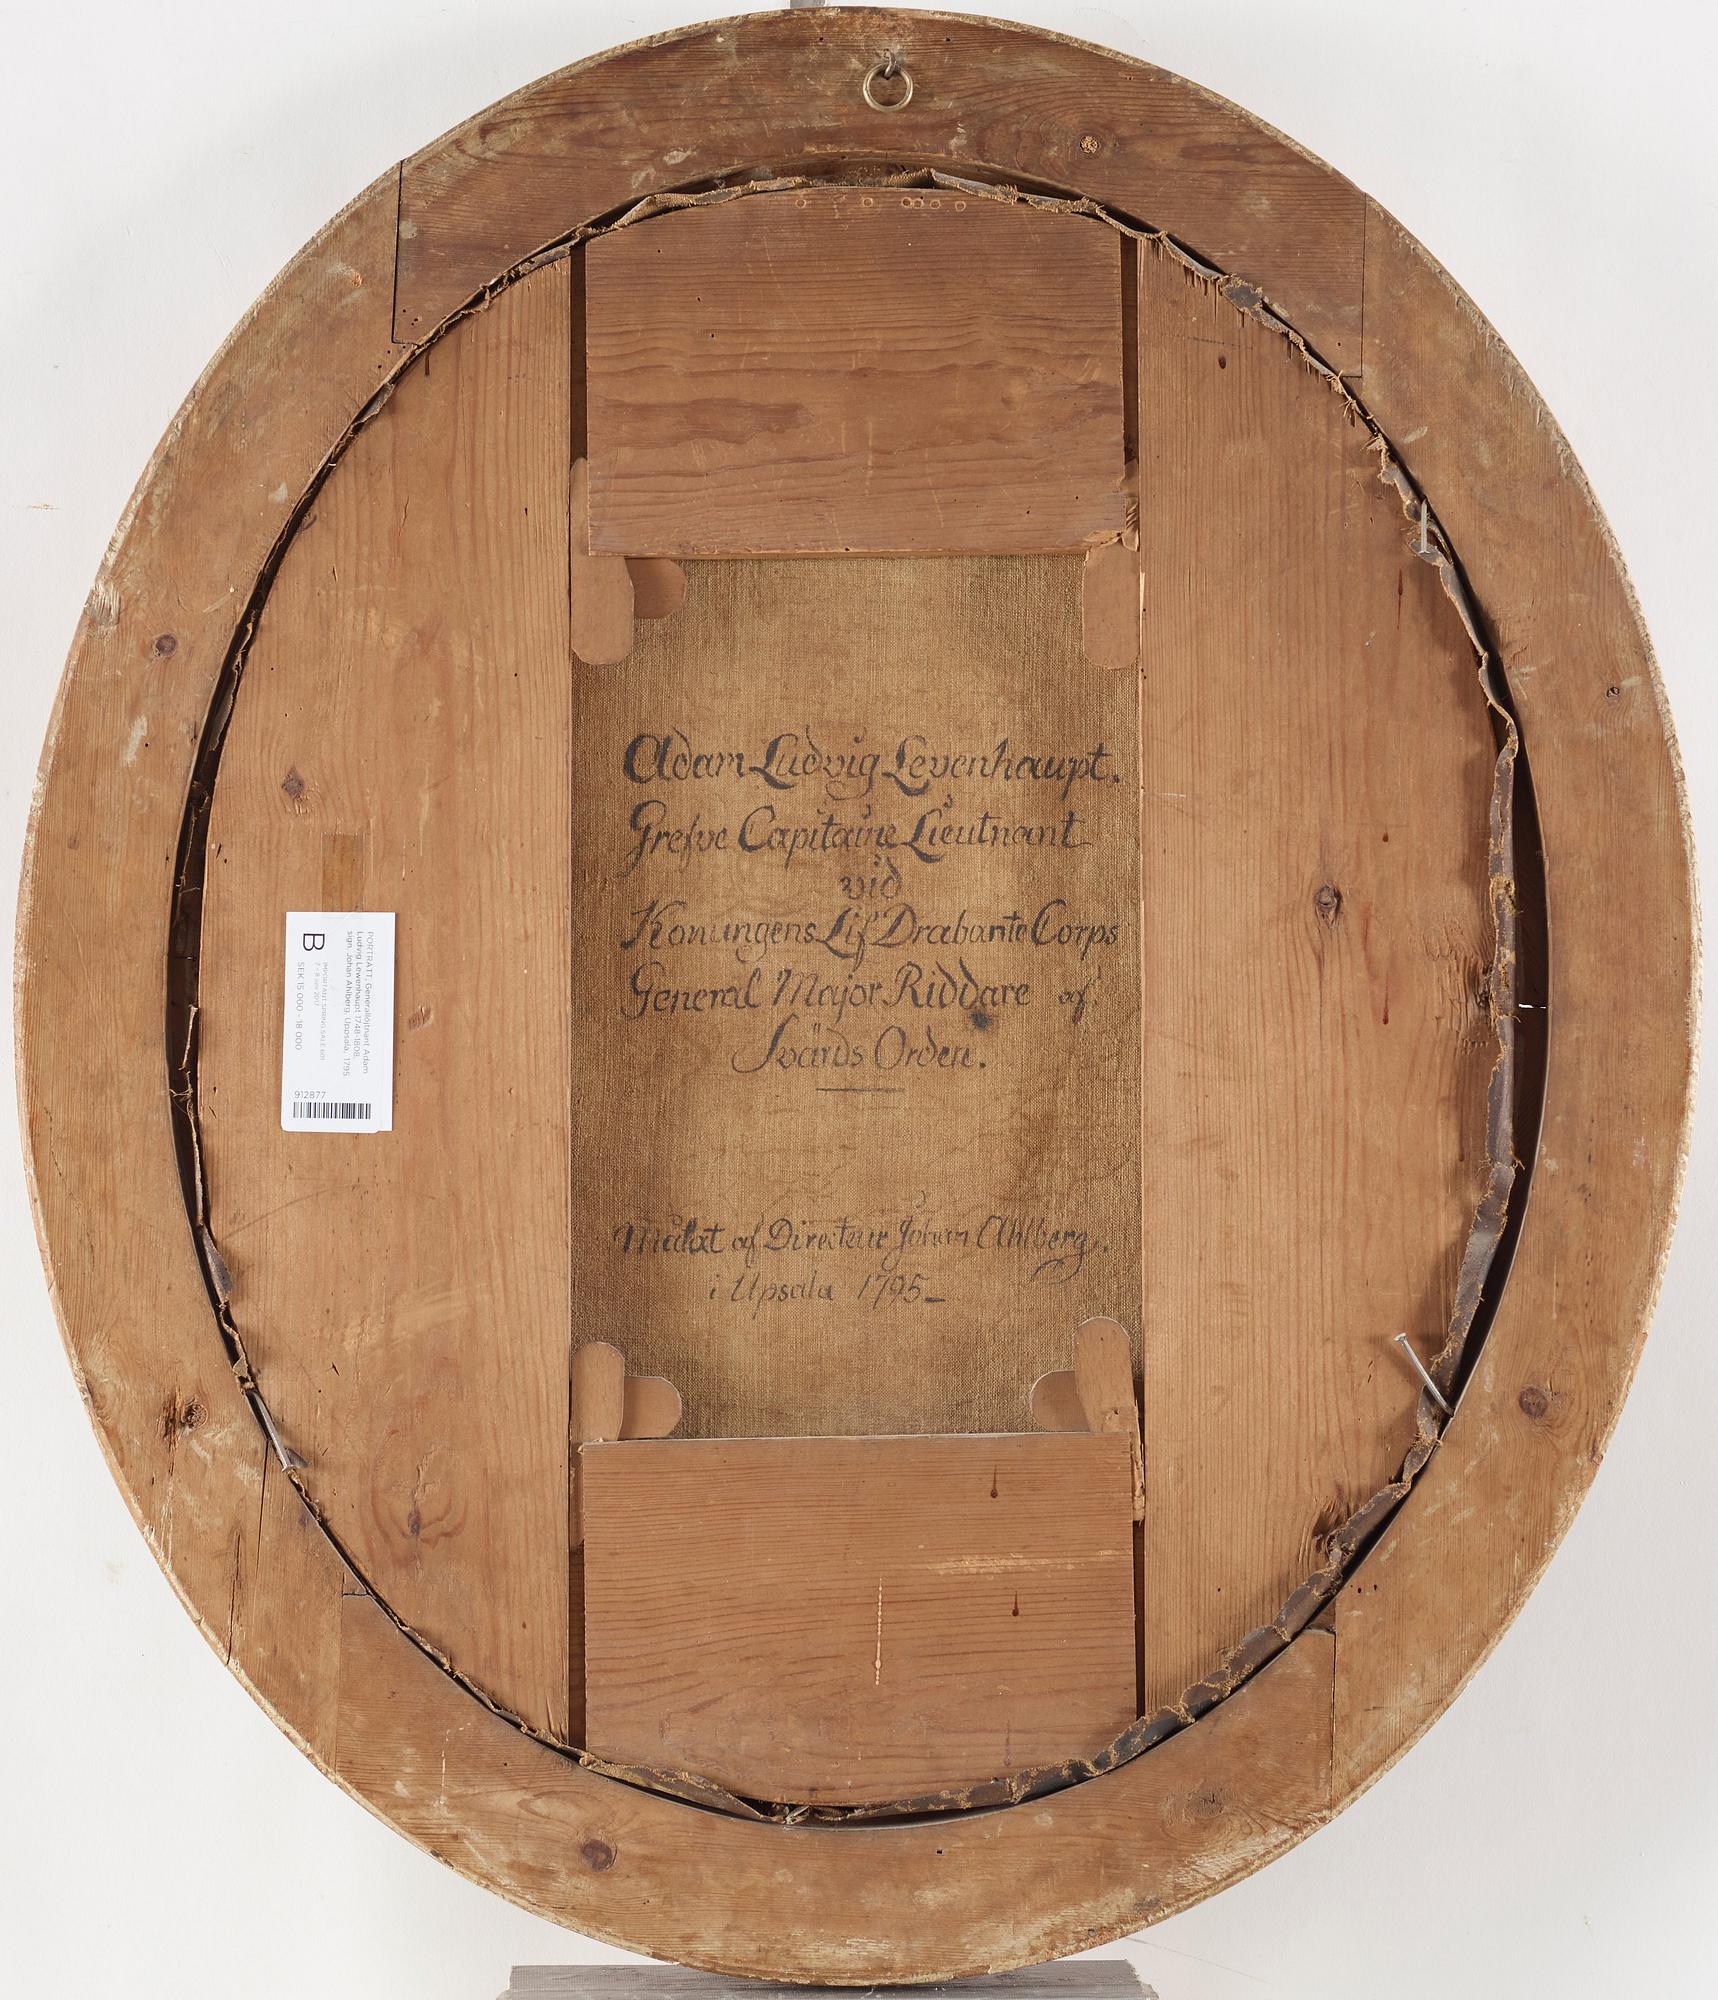 Adam Ludvig Levenhaupt.
Grefve Capitaine Lieutnant
vid
Konungens Lif Drabante Corps
General Major Riddare af
Svärds Orden.
Målat af Directeur Johan Ahlberg.
i Upsala 1795
PORTRÄTT, Generallöjtnant Adam
Ludvig Lewenhaupt 1748-1808,
sign. Johan Ahlberg, Uppsala, 1795.
B
IMPORTANT SPRING SALE 601
7 - 8 juni 2017
SEK 15 000 - 18 000
912877